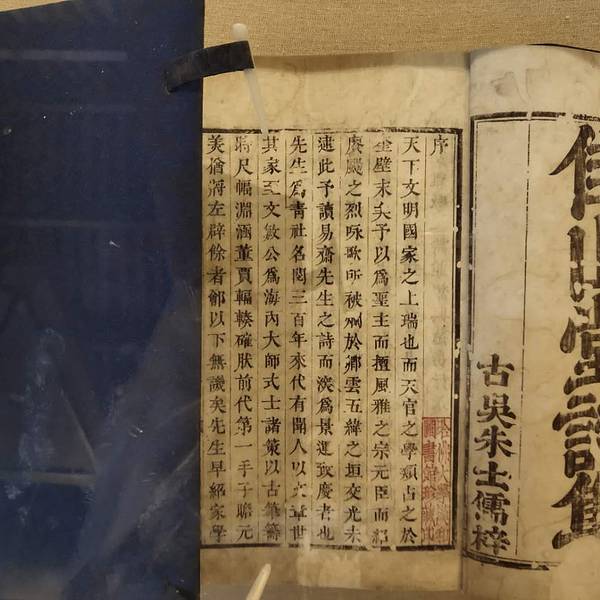 佳山堂詩集
古吳朱士儒梓
序
天下文明國家之上瑞也而天官之學類占之於
奎壁末矣予以為聖主而擅風雅之宗元臣而紹
賡颺之烈咏歌所被炳於卿雲五緯之垣交光未
逮此予讀易齋先生之詩而深為景運致慶者也
先生為青社名閥三百年來代有聞人以文章世
其家至文敏公為海內大師式士諸策以古筆籌
時尺幅淵涵董賈輻輳確肰前代第一手子瞻元
美猶將左辟餘者鄶以下無譏矣先生早紹家學